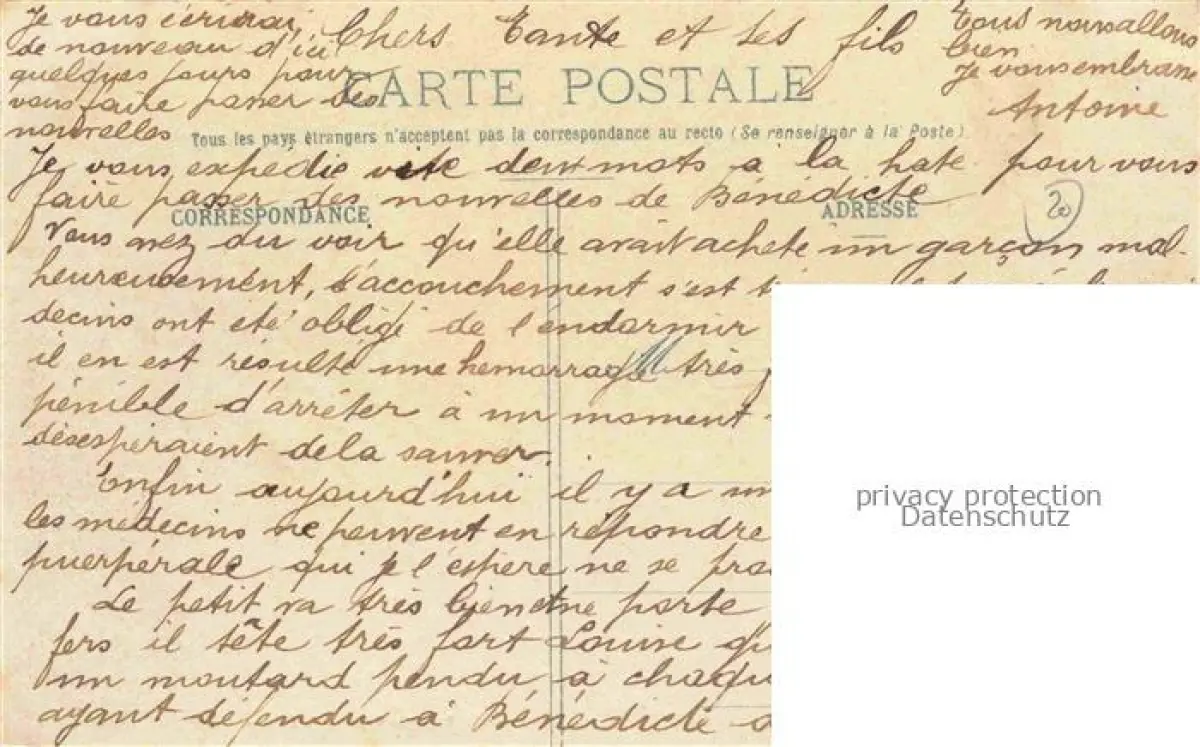 Je vous écrirai
de nouveau d'ici
quelques jours pour
vous faire passer des
nouvelles
Chers Tante et ses fils
Tous nous allons
bien
Je vous embrasse
Antoine
CARTE POSTALE
Tous les pays étrangers n'acceptent pas la correspondance au recto (Se renseigner à la Poste)
Je vous expédie vite deux mots à la hate pour vous
faire passer des nouvelles de Bénédicte
CORRESPONDANCE
ADRESSE
20
Vous avez du voir qu'elle avait acheté un garçon mal-
heureusement, l'accouchement s'est
decins ont été obligé de l'endormir
il en est résulté une hemorragie très
pénible d'arrêter à un moment
désespéraient de la sauver.
Enfin aujourd'hui il y a un
les médecins ne peuvent en répondre
puerpérale qui je l'espere ne se pro
Le petit va très bien et ne porte
fers il tête très fort Louise qu
un moutard pendu à chaqu
ayant défendu à Bénédicte
privacy protection
Datenschutz